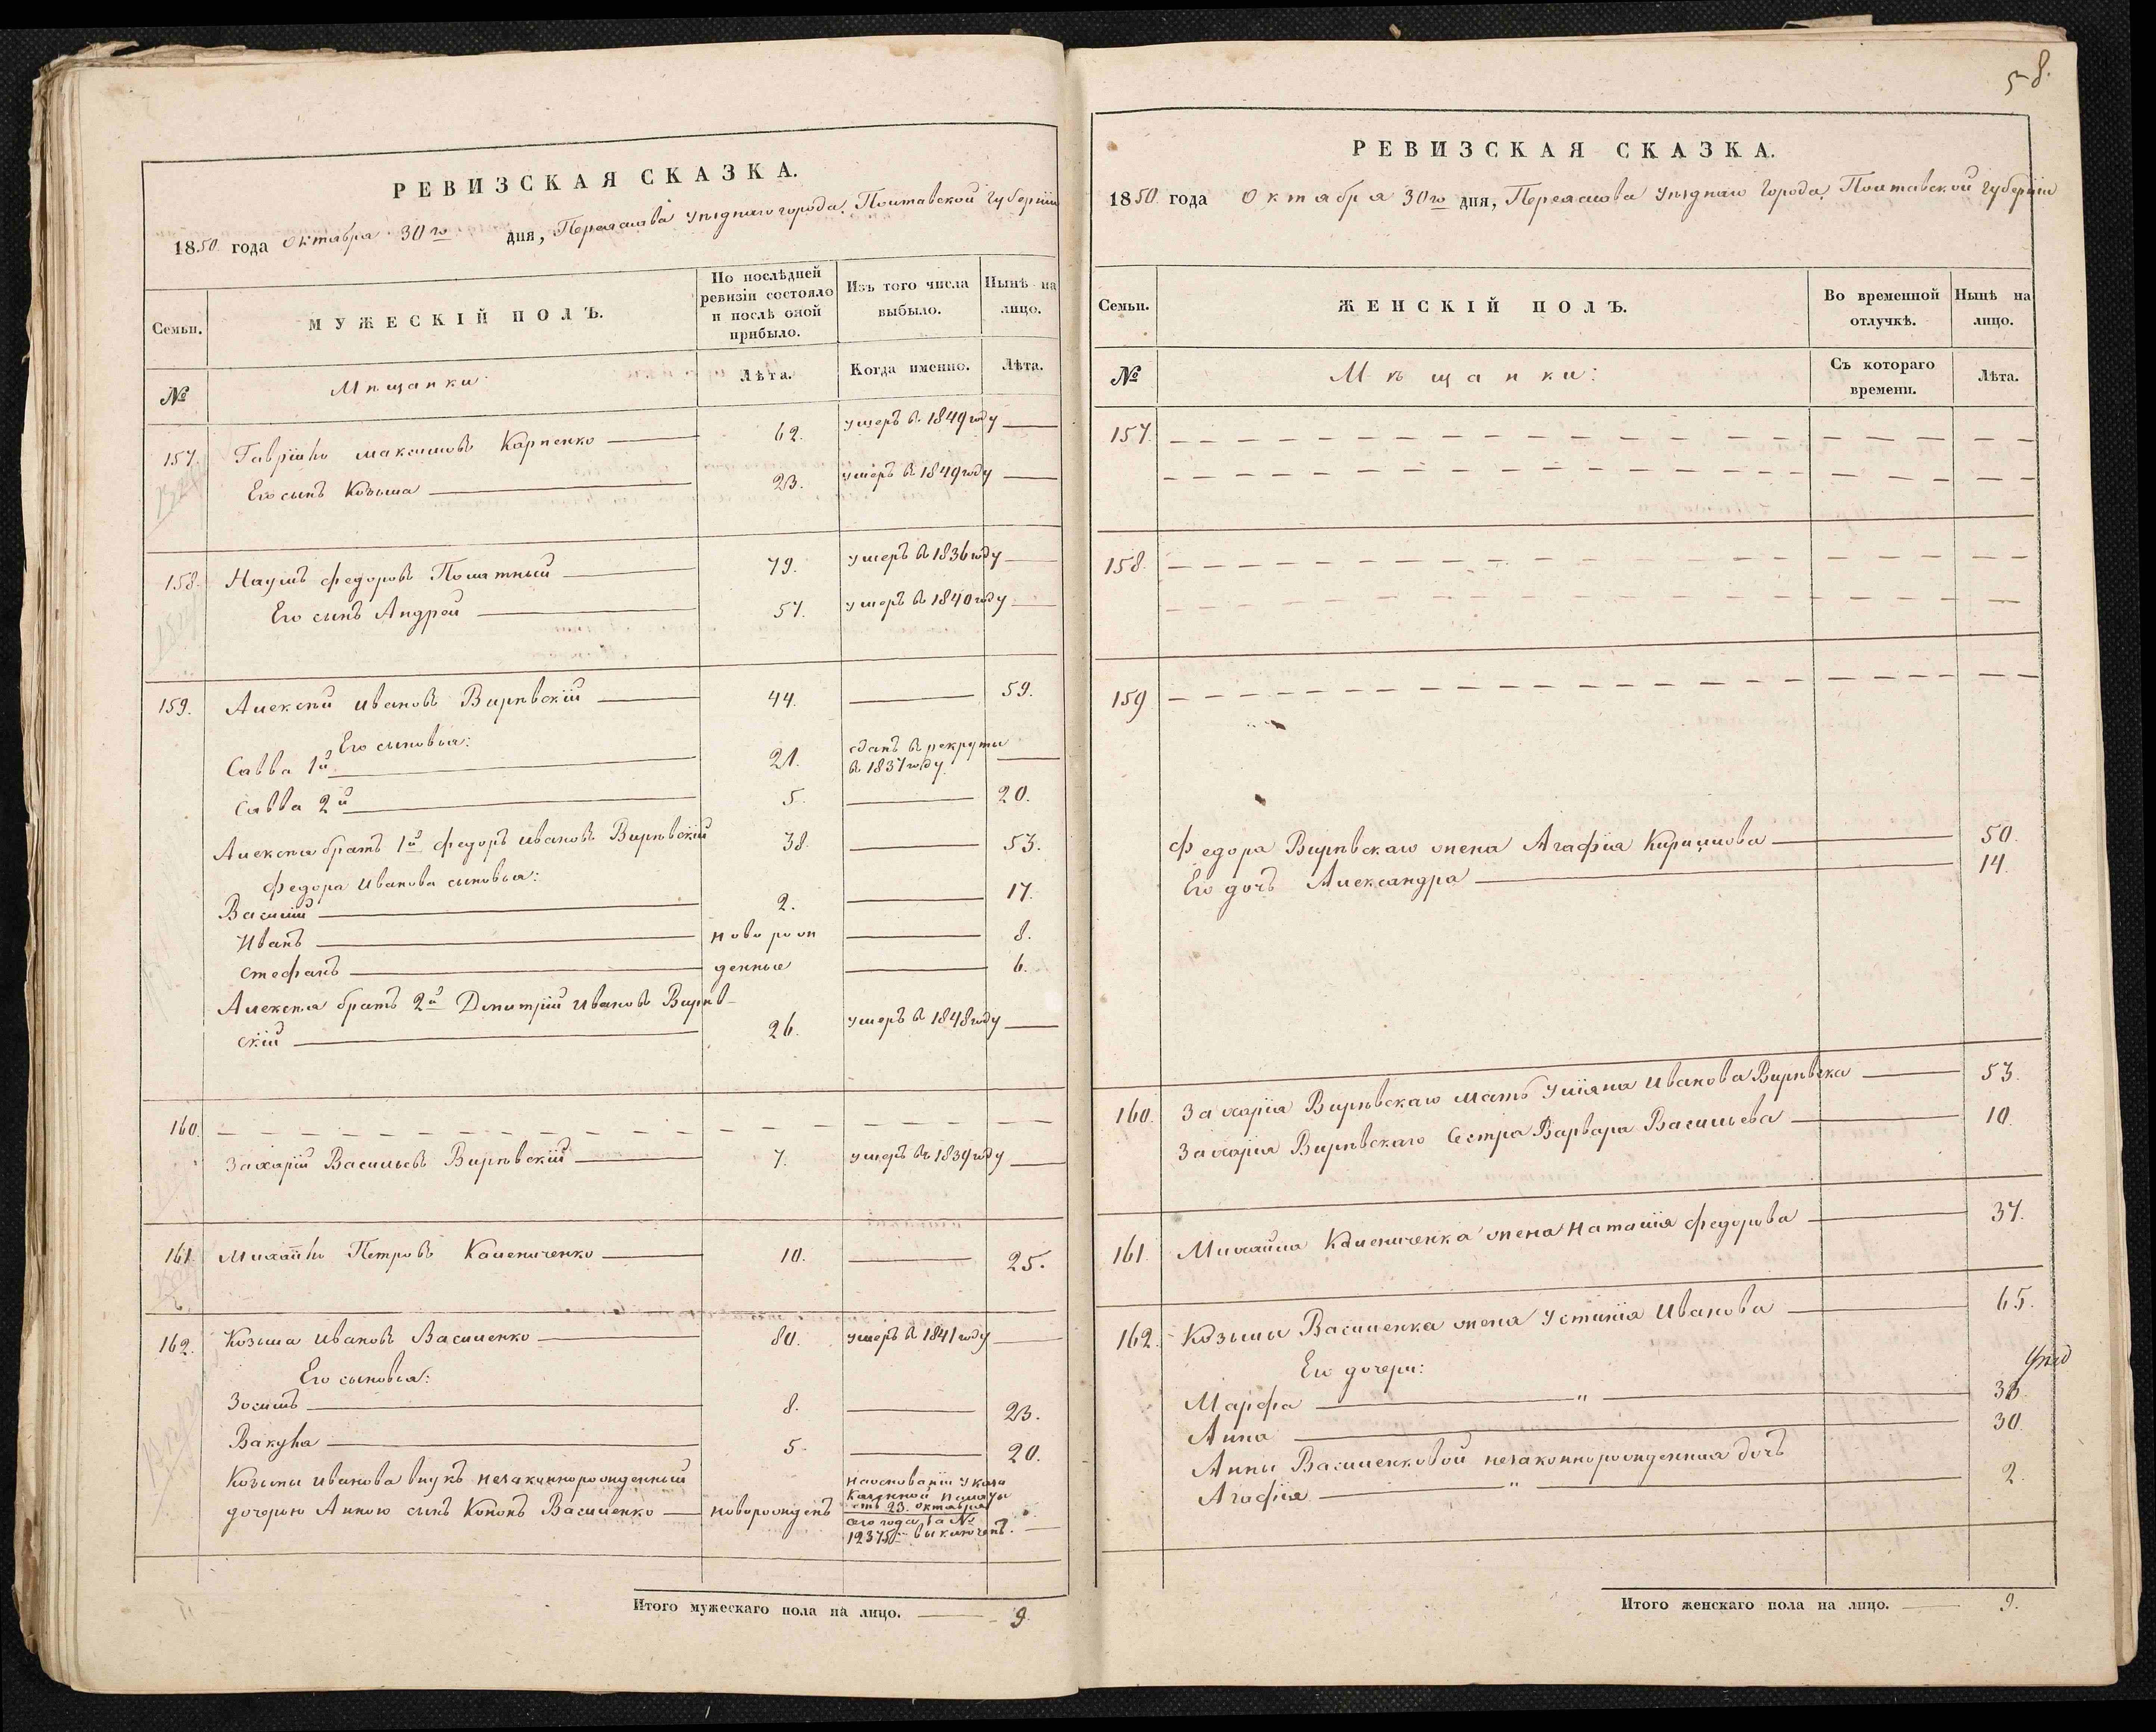 РЕВИЗСКАЯ СКАЗКА.
1850 года Октября 30го дня, Переяслова уѣзднаго города, Полтавской губерніи
Семьи.
МУЖЕСКІЙ ПОЛЪ.
По послѣдней ревизіи состояло и послѣ оной прибыло.
Изъ того числа выбыло.
Нынѣ на лицо.
№
Мѣщанки
Лѣта.
Когда именно.
Лѣта.
157. Гавріило Максимовъ Карпенко 62. умеръ въ 1849 году
Его сынъ Козьма 23. умеръ въ 1849 году
158. Наумъ Федоровъ 79. умеръ въ 1836 году
Его сынъ Андрей 57. умеръ въ 1840 году
159. Алексѣй Ивановъ Вирѣвскій 44. 59.
Его сыновья:
Савва 1й 21. сданъ въ рекруты
въ 1837 году
Савва 2й 5. 20.
Алексѣя братъ 1й Федоръ Ивановъ Вирѣвскій 38. 53.
Федора Иванова сыновья:
Василій 2. 17.
Иванъ новорож 8.
Стефанъ денные 6.
Алексѣя братъ 2й Дмитрій Ивановъ Вирѣв-
скій 26. умеръ въ 1848 году
160.
Захарій Васильевъ Вирѣвскій 7. умеръ въ 1839 году
161. Михайло Петровъ Калениченко 10. 25.
162. Козьма Ивановъ Василенко 80. умеръ въ 1841 году
Его сыновья:
Зосимъ 8. 23.
Вакула 5. 20.
Козьмы Иванова внукъ незаконнорожденный
дочерью Анною сынъ Кононъ Василенко новорожденъ
на основаніи указа
Казенной Палаты
отъ 23. октября
сего года за №
12375 выключенъ.
Итого мужескаго пола на лицо. 9.
58.
РЕВИЗСКАЯ СКАЗКА.
1850 года Октября 30го дня, Переяслова уѣзднаго города, Полтавской губерніи
Семьи.
ЖЕНСКІЙ ПОЛЪ.
Во временной отлучкѣ.
Нынѣ на лицо.
№
Мѣщанки:
Съ котораго времени.
Лѣта.
157.
158.
159
Федора Вирѣвскаго жена Агафія Кирилова 50.
Его дочь Александра 14.
160. Захарія Вирѣвскаго мать Уліяна Иванова Вирѣвска 53.
Захарія Вирѣвскаго Сестра Варвара Васильева 10.
161. Михайла Калениченка жена Наталія Федорова 37.
162. Козьмы Василенка жена Устинія Иванова 65.
Его дочери:
Марфа " 33.
Анна 30.
Анны Василенковой незаконнорожденная дочь
Агафія " 2.
Итого женскаго пола на лицо. 9.